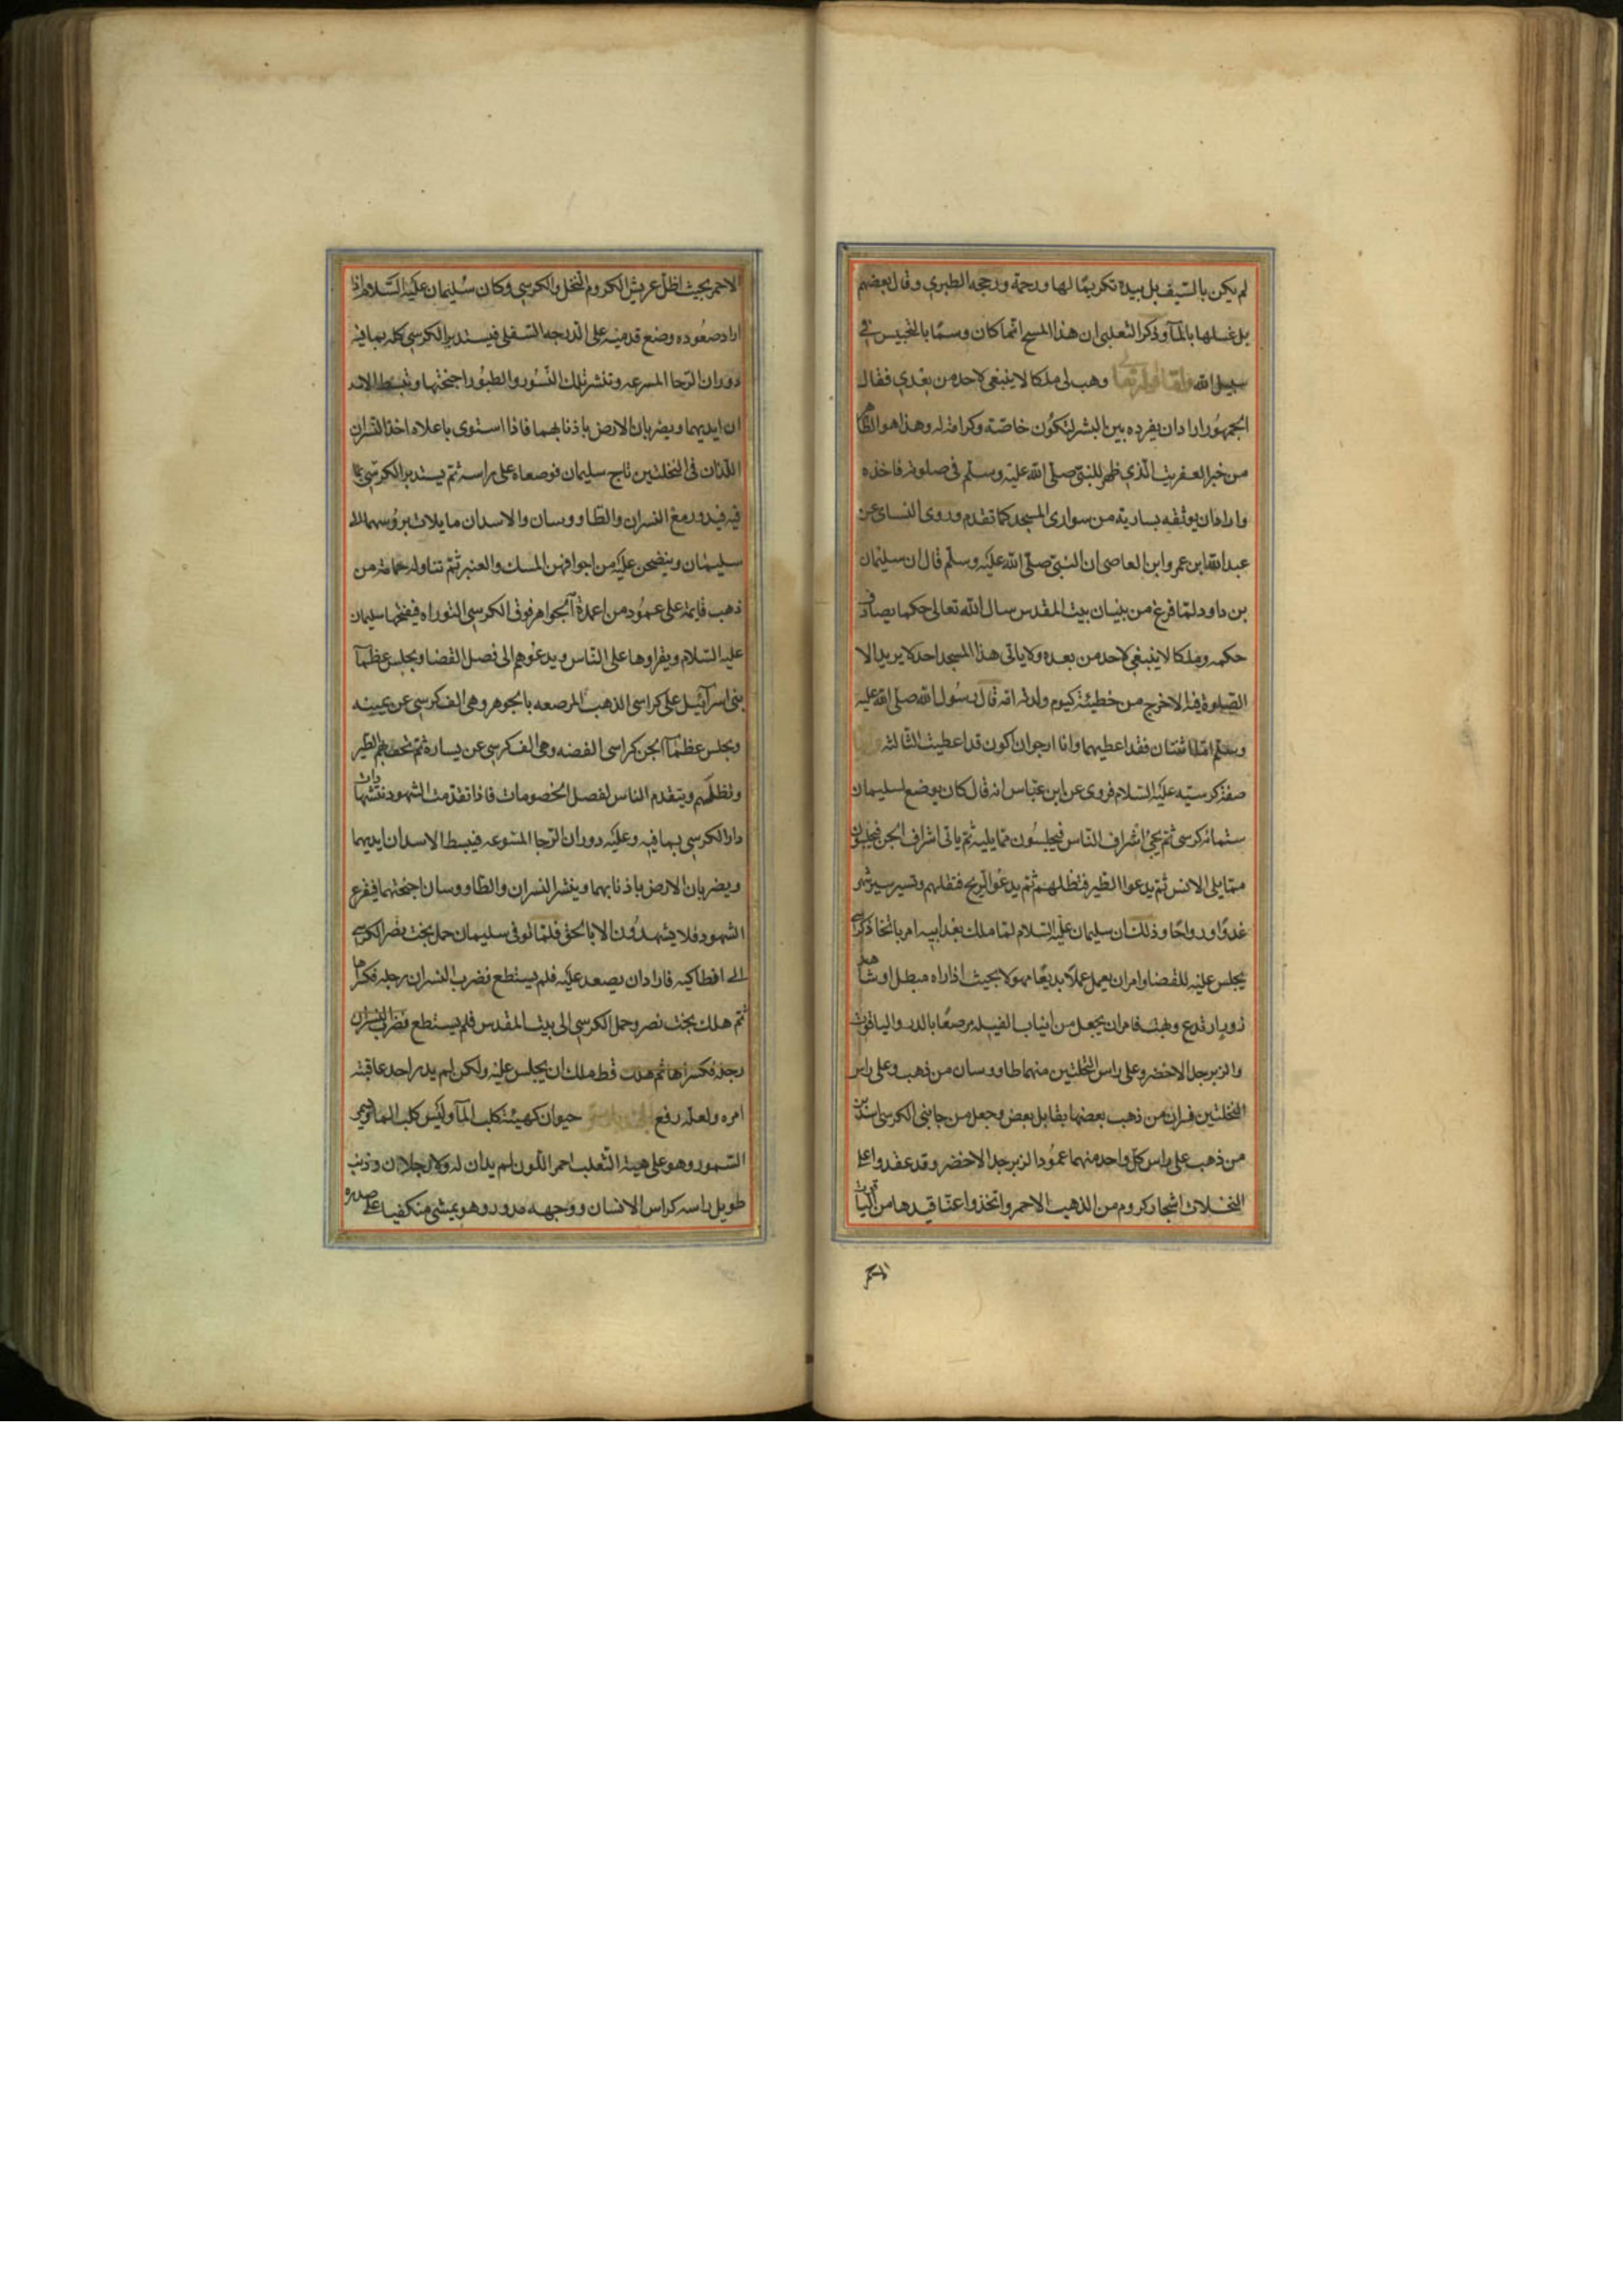 لم يكن بالسيف بل بيده تكريمًا لها ورحمة ورجحه الطبري وقال بعضهم
بل غسلها بالمآ وذكر الثعلبي ان هذا المسح انما كان وسمًا بالتحبيس في
سبيل الله واما قوله تعالى وهب لي ملكا لا ينبغي لاحد من بعدي فقال
الجمهور اراد ان يفرده بين البشر لتكون خاصّة وكرامة له وهذا هو الظاهر
من خبر العفريت الّذي ظهر للنبيّ صلّى الله عليه وسلّم في صلوته فاخذه
واراد ان يوثقه بسارية من سواري المسجد كما تقدم وروى النسائ عن
عبد الله ابن عمرو ابن العاصي ان النبيّ صلّى الله عليه وسلّم قال ان سليمان
بن داود لمّا فرغ من بنيان بيت المقدس سال الله تعالى حكما يصادف
حكمه وملكا لا ينبغي لاحد من بعده ولا ياتى هذا المسجد احد لا يريد الا
الصلوة فيه الا خرج من خطيئته كيوم ولدته امه قال رسول الله صلّى الله عليه
وسلّم امّا اثنتان فقد اعطيهما وانا ارجو ان اكون قد اعطيت الثالثه
صفة كرسيّه عليه السّلام فروى عن ابن عبّاس انه قال كان يوضع لسليمان
ستمائة كرسى ثم يجئ اشراف النّاس فيجلسون ممّا يليه ثمّ ياتى اشراف الجن فيجلسون
ممّا يلى الانس ثمّ يدعوا الطير فتظلهم ثمّ يدعو الرّيح فتقلهم وتسير مسيرة شهر
غدوّا ورواحًا وذلك ان سليمان عليه السّلام لمّا ملك بعد ابيه امر باتخاذ كرسي
يجلس عليه للقضا وامر ان يعمل عملًا بديعًا مهولا بحيث اذا راه مبطل او شاهد
زور ارتدع وبهت فامر ان يجعل من انياب الفيله مرصعًا بالدر والياقوت
والزبرجد الاخضر وعلى راس النخلتين منهما طاووسان من ذهب وعلى راس
النخلتين نسران من ذهب بعضها يقابل بعض وجعل من جانبى الكرسى اسدين
من ذهب على راس كلّ واحد منهما عمود الزبرجد الاخضر وقد عقدوا على
النخلات اشجار كروم من الذهب الاحمر واتخذوا عناقيدها من الياقوت
الاحمر
الاحمر بحيث اظلّ عريش الكروم النخل والكرسي وكان سليمان عليه السّلام اذا
اراد صعوده وضع قدميه على الدرجه السّفلى فيستدير الكرسي كله بما فيه
دوران الرّحا المسرعه وتنشر تلك النّسور والطيور اجنحتها وتبسط الاسد
ان ايديهما ويضربان الارض باذنابهما فاذا استوى باعلاه اخذ النّسران
اللّذان في النخلتين تاج سليمان فوضعاه على راسه ثمّ يستدير الكرسّي بما
فيه فيدور معه النسران والطاووسان والاسدان مايلات بروسهما الى
سليمان وينضحن عليه من اجوافهن المسك والعنبر ثمّ تناوله حمامة من
ذهب قايمة على عمود من اعمدة الجواهر فوق الكرسي التوراه فيفتحها سليمان
عليه السّلام ويقراوها على النّاس ويدعوهم الى فصل القضا ويجلس عظمآ
بنى اسرآئيل على كراسى الذهب المرصعه بالجوهر وهى الف كرسي عن يمينه
ويجلس عظمآ الجن كراسى الفضه وهى الف كرسي عن يساره ثمّ تحف بهم الطير
وتظلّهم ويتقدم الناس لفصل الخصومات فاذا تقدّمت الشهود شهادات
دار الكرسي بما فيه وعليه دوران الرّحا المسرعه فيبسط الاسدان ايديهما
ويضربان الارض باذنابهما وينشر النسران والطاووسان اجنحتهما فيفزع
الشهود فلا يشهدون الا بالحق فلمّا توفى سليمان حمل بخت نصر الكرسي
الى انطاكيه فاراد ان يصعد عليه فلم يستطع فضرب النسران رجله فكسراها
ثمّ هلك بخت نصر وحمل الكرسي الى بيت المقدس فلم يستطع فضرب النسران
رجله فكسراها ثم هلك قط ملك ان يجلس عليه ولكن لم يدر احد عاقبة
امره ولعله رفع حيوان كهيئة كلب المآ وليس كلب الما ويسمى
السّمور وهو على هيئة الثعلب احمر اللون لم يدان له ولا رجلان وذنب
طويل راسه كراس الانسان ووجهه مدور وهو يمشى منكفيا على صدره